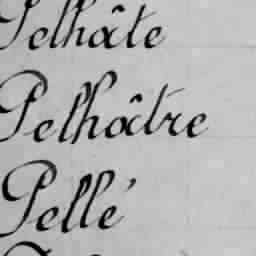 Pelhâte
Pelhâtre
Pellé